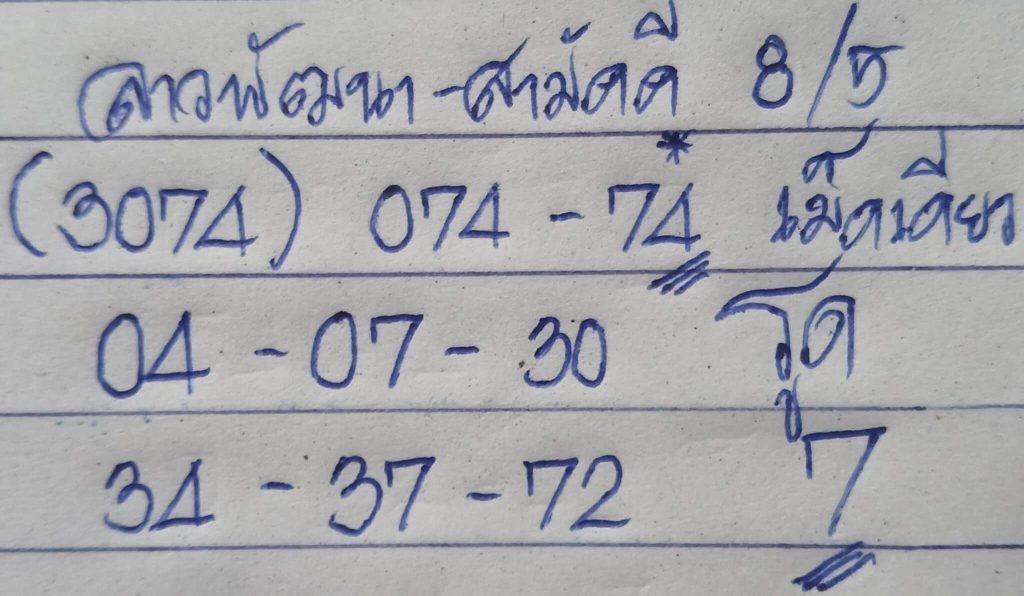 ลาวพัฒนา-สามัคคี 8/5
(3074) 074 - 74* เม็ดเดียว
04 - 07 - 30 รูด
34 - 37 - 72 7